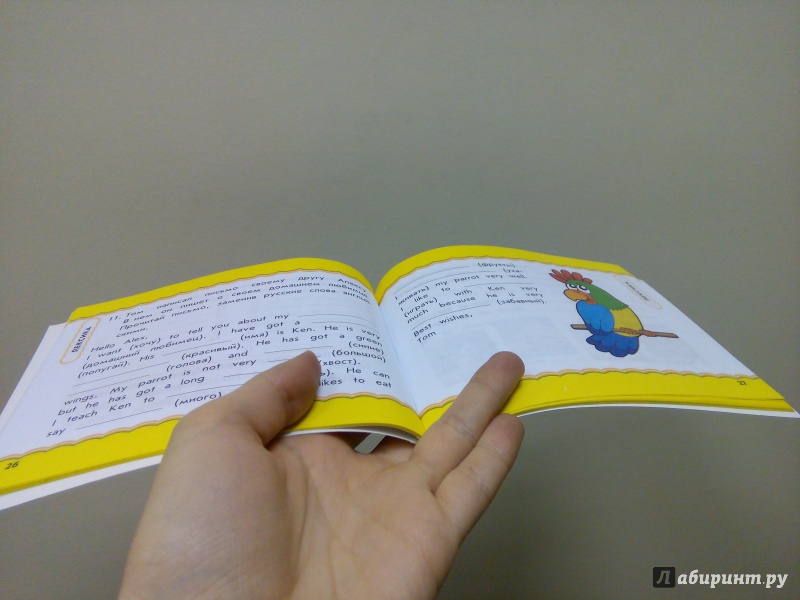 ЛЕКСИКА
11. Том написал письмо своему другу Алексу.
В нём он пишет о своём домашнем любимце.
Прочитай письмо, заменив русские слова
скими.
Hello Alex,
I want (хочу) to tell you about my
(домашний любимец). I have got a
(попугай). His (имя) is Ken. He is very
(красивый). He has got a green
(голова) and (синие)
wings. My parrot is not very (большой)
but he has got a long (хвост).
I teach Ken to He can
say (много) likes to eat
26
(фрукты).
I (уха-
живать) my parrot very well.
I like to with Ken very
(играть) because he is very
much (забавный).
Best wishes,
Tom
27
Лабиринт.ру